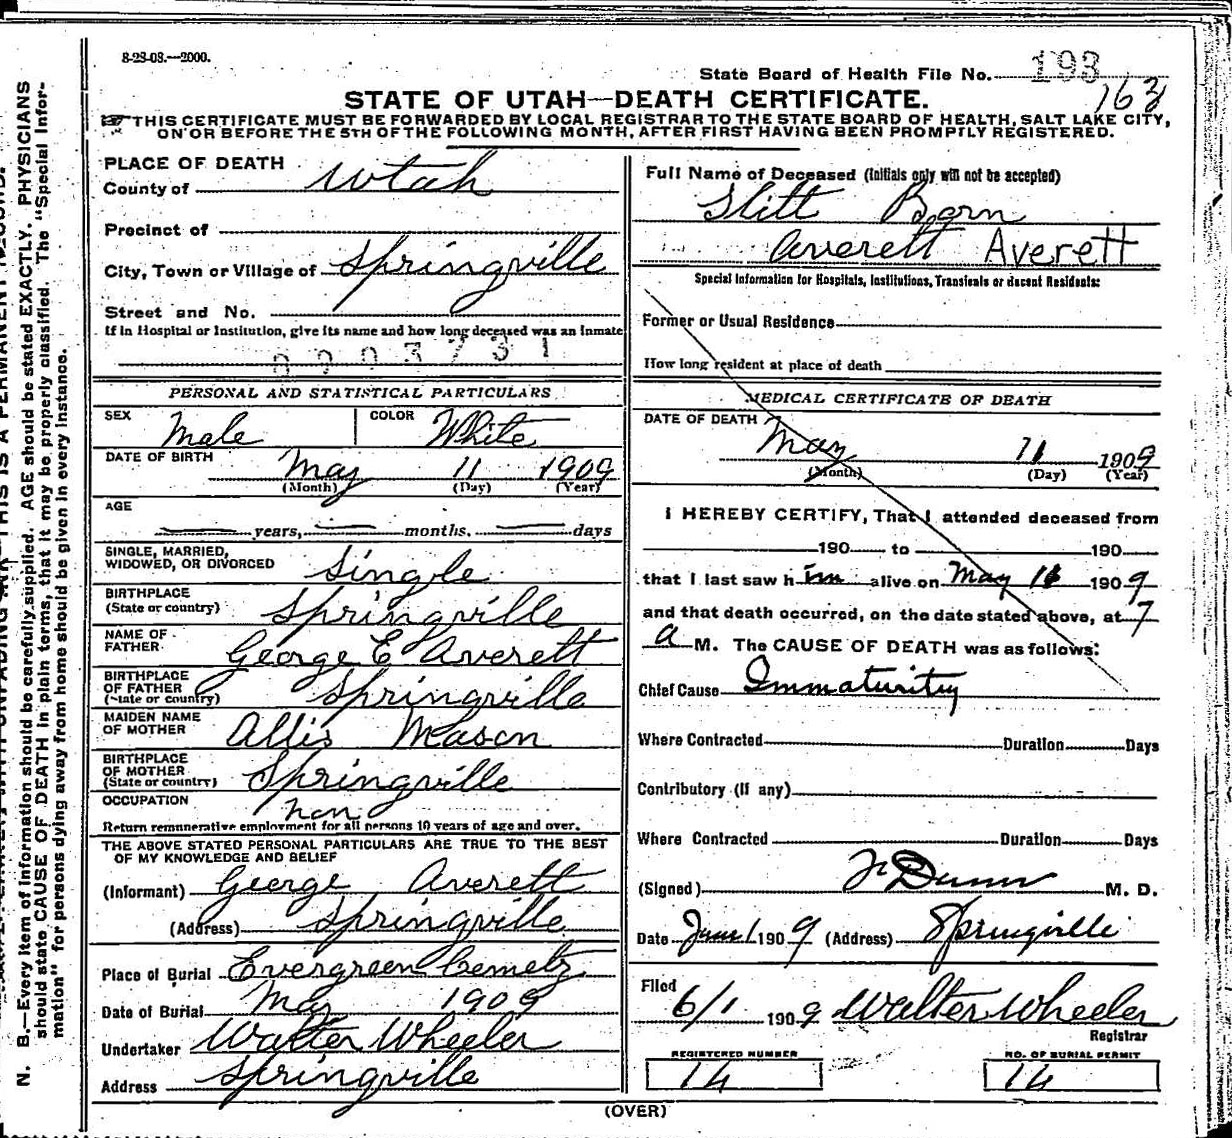 8-28-08.—2000.
State Board of Health File No. 193
163
STATE OF UTAH—DEATH CERTIFICATE.
THIS CERTIFICATE MUST BE FORWARDED BY LOCAL REGISTRAR TO THE STATE BOARD OF HEALTH, SALT LAKE CITY,
ON OR BEFORE THE 5TH OF THE FOLLOWING MONTH, AFTER FIRST HAVING BEEN PROMPTLY REGISTERED.
PLACE OF DEATH
County of Utah
Precinct of
City, Town or Village of Springville
Street and No.
If in Hospital or Institution, give its name and how long deceased was an inmate
0003731
PERSONAL AND STATISTICAL PARTICULARS
SEX Male COLOR White
DATE OF BIRTH May 11 1909
(Month) (Day) (Year)
AGE
years, months, days
SINGLE, MARRIED,
WIDOWED, OR DIVORCED Single
BIRTHPLACE
(State or country) Springville
NAME OF
FATHER George E Averett
BIRTHPLACE
OF FATHER
(State or country) Springville
MAIDEN NAME
OF MOTHER Allis Mason
BIRTHPLACE
OF MOTHER
(State or country) Springville
OCCUPATION non
Return remunerative employment for all persons 10 years of age and over.
THE ABOVE STATED PERSONAL PARTICULARS ARE TRUE TO THE BEST
OF MY KNOWLEDGE AND BELIEF
(Informant) George Averett
(Address) Springville
Place of Burial Evergreen Cemetz
Date of Burial May 1909
Undertaker Walter Wheeler
Address Springville
Full Name of Deceased (Initials only will not be accepted)
Stitt Born
Averett Averett
Special Information for Hospitals, Institutions, Transients or decent Residents:
Former or Usual Residence
How long resident at place of death
MEDICAL CERTIFICATE OF DEATH
DATE OF DEATH
May 11 1909
(Month) (Day) (Year)
I HEREBY CERTIFY, That I attended deceased from
190 to 190
that I last saw h im alive on May 11 1909
and that death occurred, on the date stated above, at 7
a M. The CAUSE OF DEATH was as follows:
Chief Cause Immaturity
Where Contracted Duration Days
Contributory (If any)
Where Contracted Duration Days
(Signed) F Dunn M. D.
Date June 1 1909 (Address) Springville
Filed
6/1 1909 Walter Wheeler
Registrar
REGISTERED NUMBER NO. OF BURIAL PERMIT
14 14
(OVER)
N. B.—Every item of information should be carefully supplied. AGE should be stated EXACTLY. PHYSICIANS
should state CAUSE OF DEATH in plain terms, that it may be properly classified. The "Special Infor-
mation" for persons dying away from home should be given in every instance.